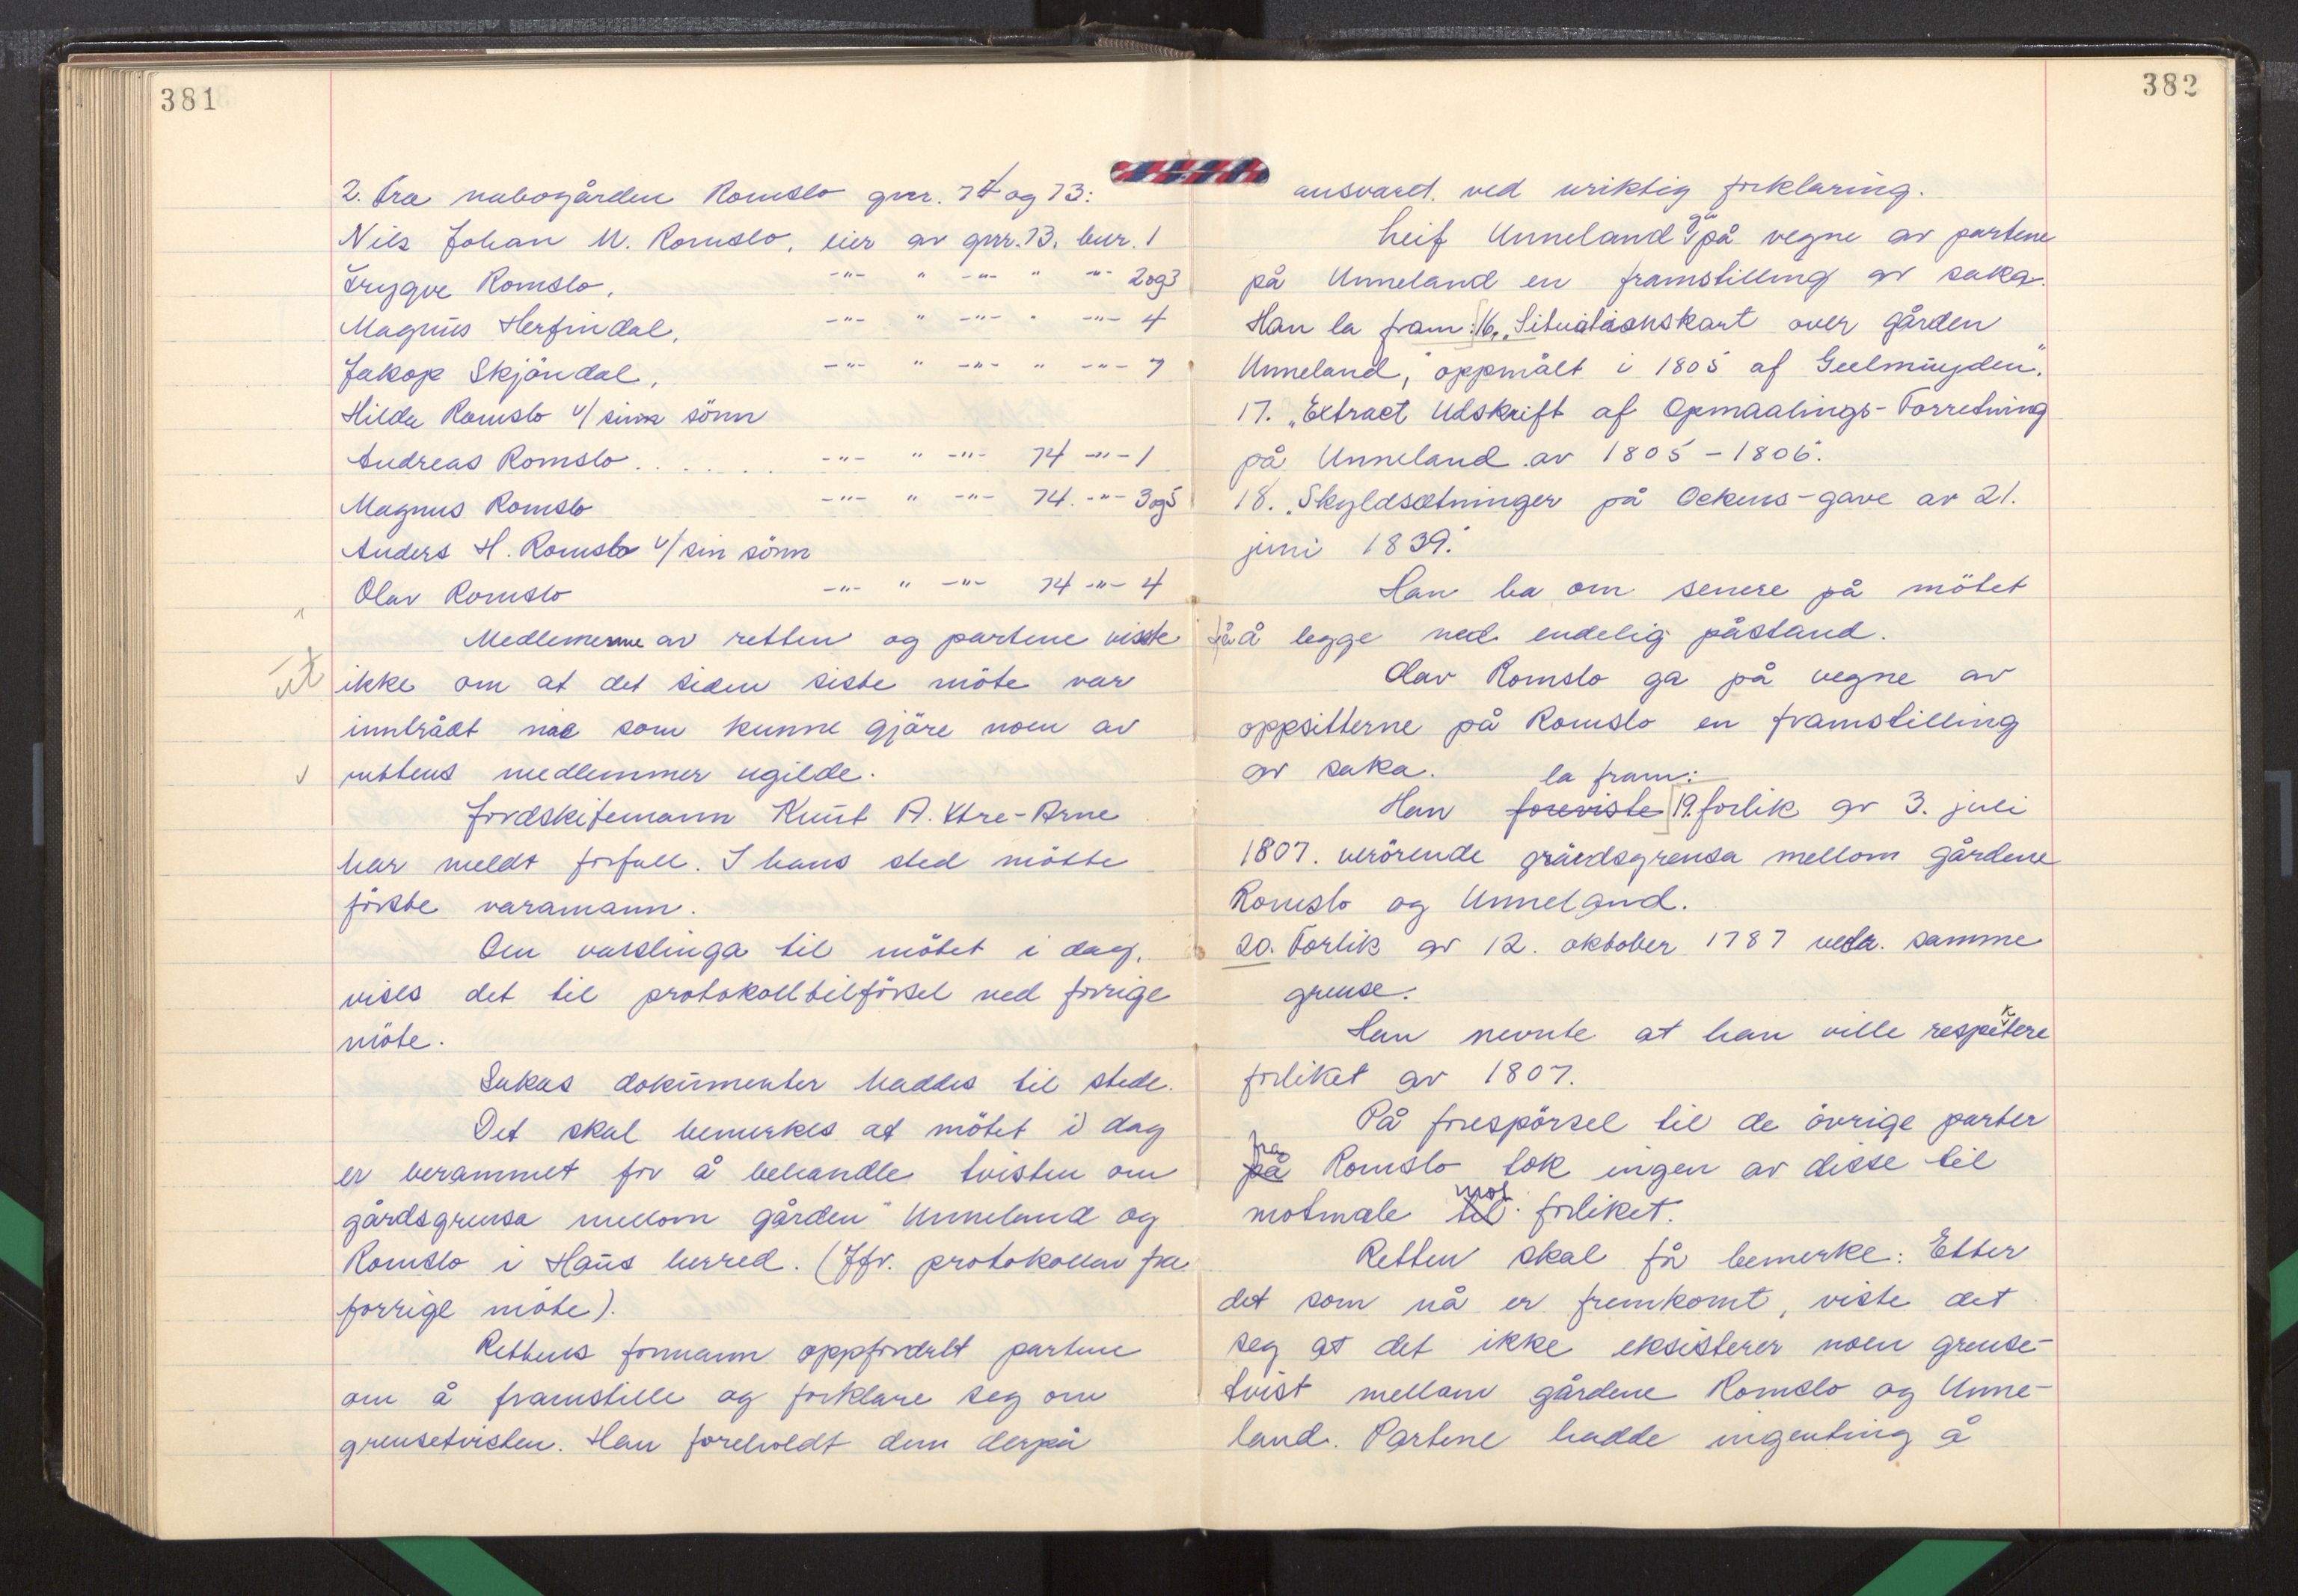 381
2. Fra nabogården Romslo gnr. 74 og 73:
Nils Johan M. Romslo, eier av gnr. 73, bnr. 1
Trygve Romslo, -"- " -"- " -"- 2 og 3
Magnus Herfindal, -"- " -"- " -"- 4
Jakop Skjöndal, -"- " -"- " -"- 7
Hilda Romslo v/ sinn sönn
Andreas Romslo . . . . . . -"- " -"- 74 -"- 1
Magnus Romslo -"- " -"- 74. -"- 3 og 5
Anders H. Romslo v/ sin sönn
Olav Romslo -"- " -"- 74 -"- 4
Medlemerne av retten og partene visste
ikke om at det siden siste möte var
inntrådt noe som kunne gjöre noen av
rettens medlemmer ugilde.
Jordskiftemann Knut A. Ytre-Arne
har meldt forfall. I hans sted mötte
förste varamann.
Om varslinga til mötet i dag,
vises det til protokolltilförsel ved forrige
möte.
Sakas dokumenter haddes til stede.
Det skal bemerkes at mötet i dag
er berammet for å behandle tvisten om
gårdsgrensa mellom gården Unneland og
Romslo i Haus herred. (Jfr. protokollen fra
forrige möte).
Rettens formann oppfordret partene
om å framstille og forklare seg om
grensetvisten. Han foreholdt dem derpå
382
ansvaret ved uriktig forklaring.
Leif Unneland ga på vegne av partene
på Unneland en framstilling av saka.
Han la fram: 16. „Situationskart over gården
Unneland," oppmålt i 1805 af Geelmuyden".
17. „Extract Udskrift af Opmaalings-Forretning
på Unneland av 1805-1806".
18. „Skyldsætninger på Ockens-gave av 21.
juni 1839."
Han ba om senere på mötet
få å legge ned endelig påstand.
Olav Romslo ga på vegne av
oppsitterne på Romslo en framstilling
av saka.
Han foreviste la fram: 19. forlik av 3. juli
1807. verörende gråedsgrensa mellom gårdene
Romslo og Unneland.
20. Forlik av 12. oktober 1787 vedr. samme
grense.
Han nevnte at han ville respektere
forliket av 1807.
På forespörsel til de övrige parter
på fra Romslo tok ingen av disse til
motmæle til mot forliket.
Retten skal få bemerke: Etter
det som nå er fremkomt, viste det
seg at det ikke eksisterer noen grense-
tvist mellom gårdene Romslo og Unne-
land. Partene hadde ingenting å